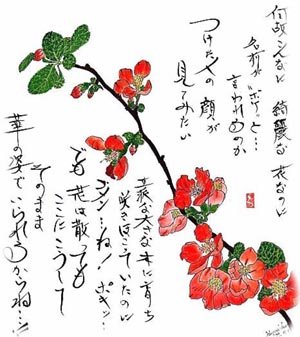 何故こんなに 綺麗な 花なのに
名前が "ボケ"と…
言われるのか
つけた人の 顔が
見てみたい
立派な大きな 木に育ち
咲きほこっていたのに
ね! ポキン…
でも 花は散っても
ここに こうして
そのまま
華の姿で いられるからね…!!